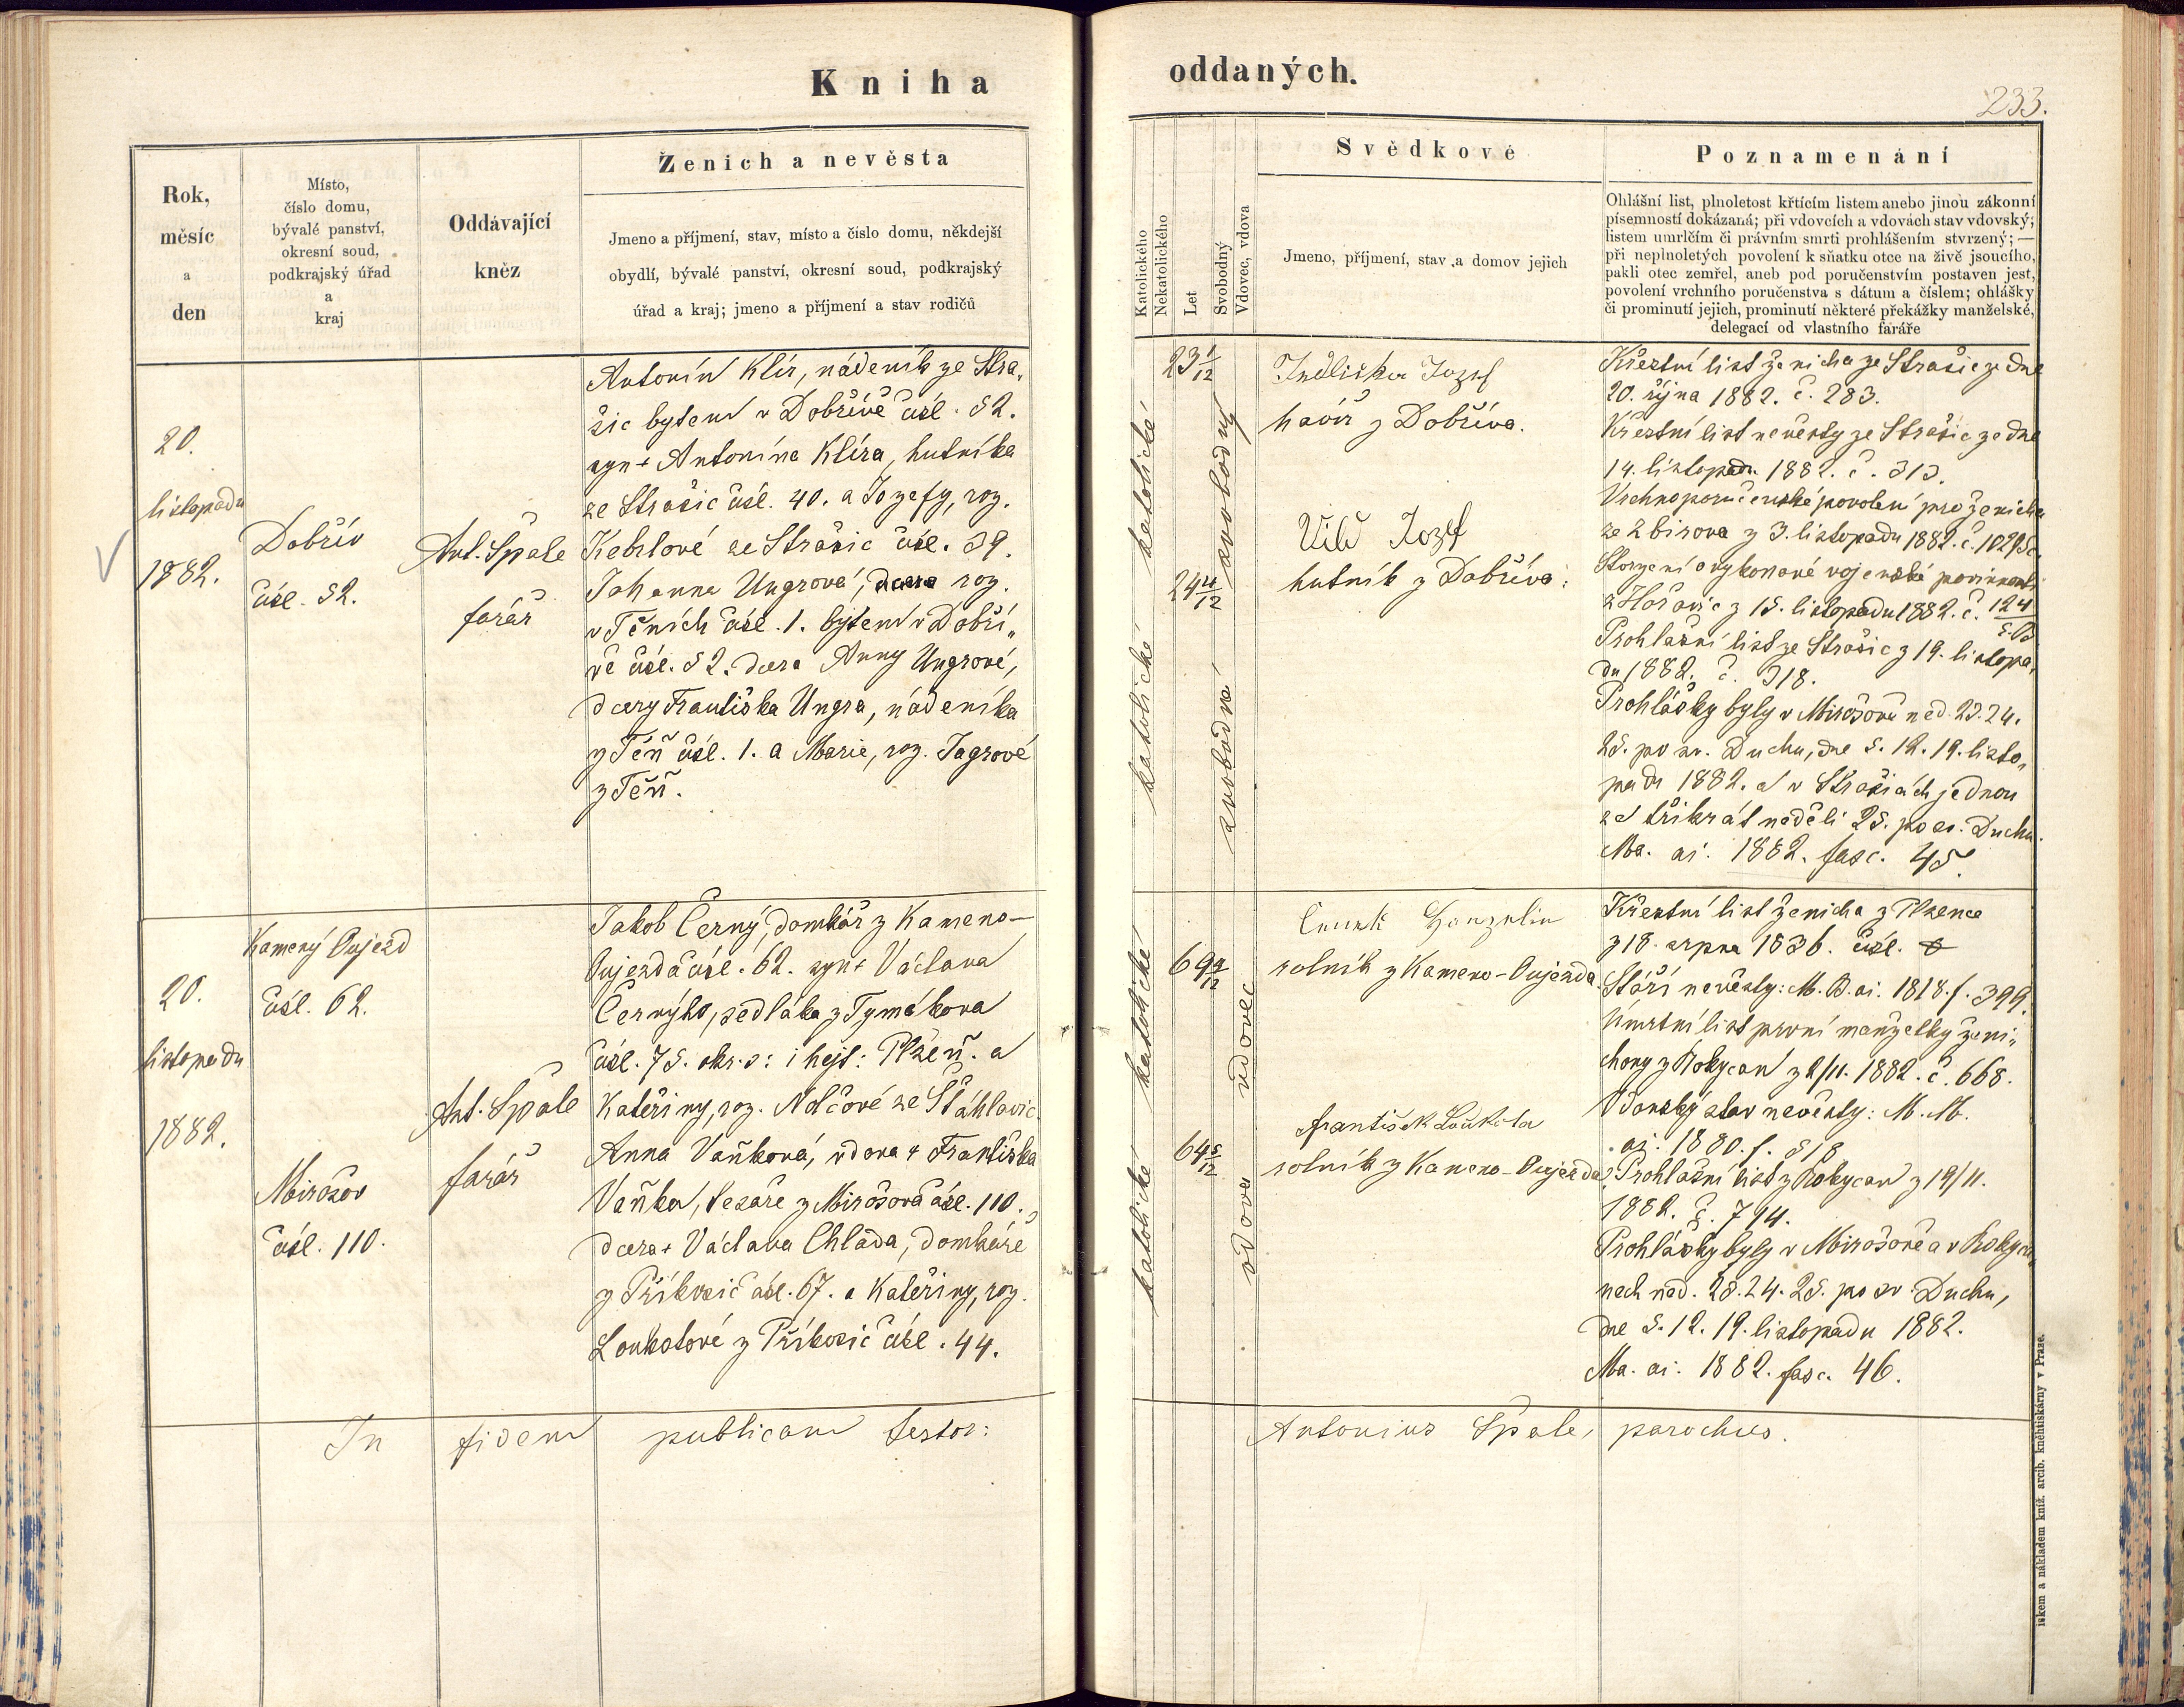 Kniha
oddaných.
233.
Rok,
měsíc
a
den
Místo,
číslo domu,
bývalé panství,
okresní soud,
podkrajský úřad
a
kraj
Oddávající
kněz
Ženich a nevěsta
Jmeno a příjmení, stav, místo a číslo domu, někdejší
obydlí, bývalé panství, okresní soud, podkrajský
úřad a kraj; jmeno a příjmení a stav rodičů
Katolického
Nekatolického
Let
Svobodný
Vdovec, vdova
Svědkové
Jmeno, příjmení, stav a domov jejich
Poznamenání
Ohlášní list, plnoletost křtícím listem anebo jinou zákonní
písemností dokázaná; při vdovcích a vdovách stav vdovský;
listem umrlčím či právním smrti prohlášením stvrzený; —
při neplnoletých povolení k sňatku otce na živě jsoucího,
pakli otec zemřel, aneb pod poručenstvím postaven jest,
povolení vrchního poručenstva s dátum a číslem; ohlášky
či prominutí jejich, prominutí některé překážky manželské,
delegací od vlastního faráře
20.
listopadu
1882.
Dobřív
čísl. 52.
Ant. Špale
farář
Antonín Klír, nádeník ze Stra-
šic bytem v Dobřívě čísl. 52.
syn + Antonína Klíra, hutníka
ze Strašic čísl. 40. a Josefy, roz.
ze Strašic čísl. 39.
Johanna Ungrová, dcera roz.
v Těních čísl. 1. bytem v Dobří-
vě čísl. 52. dcera Anny Ungrové,
dcery Františka Ungra, nádeníka
z Těň čísl. 1. a Marie, roz. Jägrové
z Těň.
katolické
katolické
23 1/12
svobodný
svobodná
Jedlička Josef
havíř z Dobříva.
Vild Josef
hutník z Dobříva.
Křestní list ženicha ze Strašic ze dne
20. října 1882. č. 283.
Křestní list nevěsty ze Strašic ze dne
14. listopadu 1882. č. 313.
Vrchnoporučenské povolení pro ženicha
ze Zbirova z 3. listopadu 1882. č.
Stvrzení o vykonané vojenské povinnosti
z Hořovic z 15. listopadu 1882. č. 124
Prohlašní list ze Strašic z 19. listopa-
du 1882. č. 318.
Prohlášky byly v Mirošově ned. 23. 24.
25. po sv. Duchu, dne 5. 12. 19. listo-
padu 1882. a v Strašicích jednou
za třikrát neděli 25. po sv. Duchu.
Ma. ai. 1882. fasc. 45.
20.
listopadu
1882.
Kamený Oujezd
čísl. 62.
Mirošov
čísl. 110.
Ant. Špale
farář
Jakob Černý, domkář z Kameno-
Oujezda čísl. 62. syn + Václava
Černýho, sedláka z Tymákova
čísl. 75. okr. s: i hejt: Plzeň. a
Kateřiny, roz. Nolčové ze Štáhlavic.
Anna Vaňková, vdova + Františka
Vaňka, tesaře z Mirošova čísl. 110.,
dcera + Václava Chlada, domkáře
z Příkosic čísl. 67. a Kateřiny, roz.
Loukotové z Příkosic čísl. 44.
katolické
katolické
64 5/12
vdovec
vdova
rolník z Kameno-Oujezda.
František Loukota
rolník z Kameno-Oujezda
Křestní list ženicha z Plzence
z 18. srpna 1836. čísl.
Stáří nevěsty: M. B. ai. 1818. f. 399.
Umrtní list první manželky ženi-
chovy z Rokycan z 2/11. 1882. č. 668.
Vdovský stav nevěsty: M. M.
ai. 1880. f. 518
Prohlašní list z Rokycan z 19/11.
1882. č. 794.
Prohlášky byly v Mirošově a v Rokyca-
nech ned. 23. 24. 25. po sv. Duchu,
dne 5. 12. 19. listopadu 1882.
Ma. ai. 1882. fasc. 46.
In fidem publicam testor:
Antonius Špale, parochus.
tiskem a nákladem kníž. arcib. kněhtiskárny v Praze.